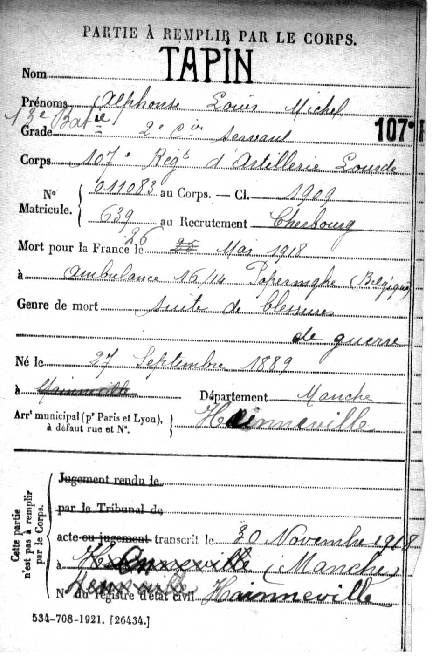 PARTIE À REMPLIR PAR LE CORPS.
Nom TAPIN
Prénoms Alphonse Louis Michel
13e Batie
Grade 2e cir servant
107e
Corps 107e Régt d'Artillerie Lourde
N° Matricule. { 011083 au Corps. — Cl. 1909
639 au Recrutement Cherbourg
Mort pour la France le 26 Mai 1918
à Ambulance 16/14 Poperinghe (Belgique)
Genre de mort suite de blessures
de guerre
Né le 27 Septembre 1889
à Hainneville Département Manche
Arrt municipal (pr Paris et Lyon), à défaut rue et N°. } Hainneville
Cette partie n'est pas à remplir par le Corps.
Jugement rendu le
par le Tribunal de
acte ou jugement transcrit le 30 Novembre 1918
à Hainneville (Manche)
N° du registre d'état civil Hainneville
534-708-1921. [26434.]